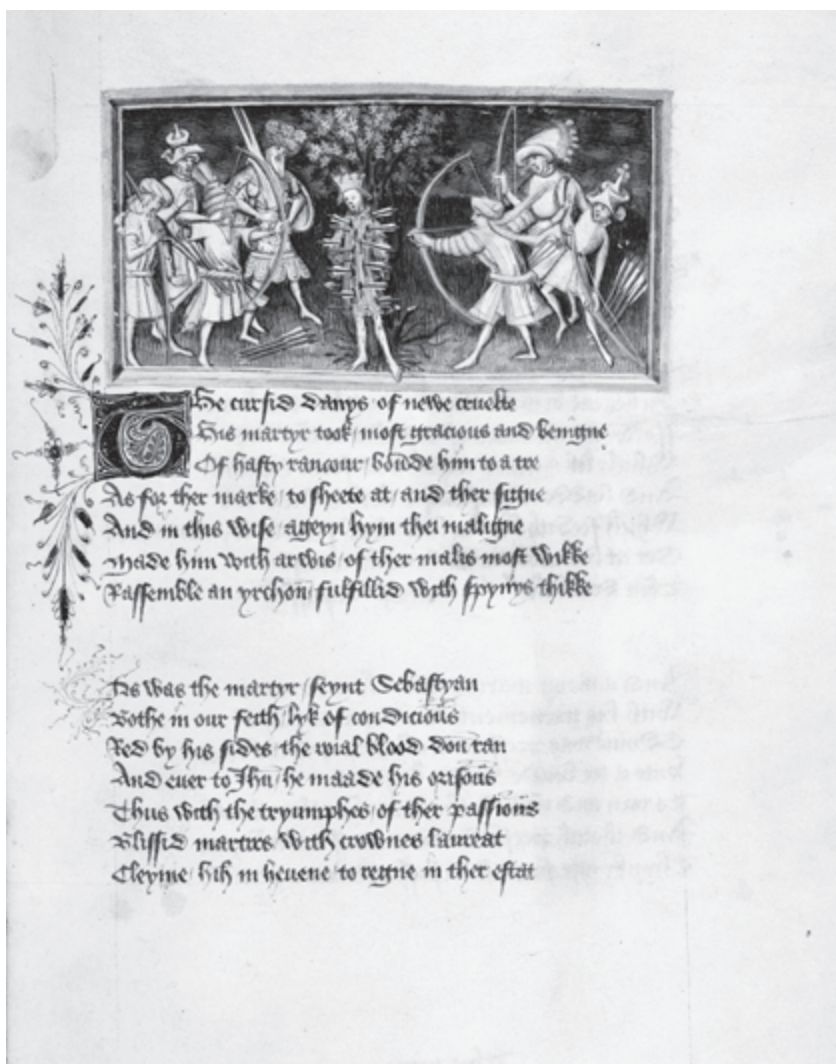 The cursid Danys of newe cruelte
This martyr took most gracious and benigne
Of hasty rancour bounde him to a tre
As for ther marke to sheete at and ther signe
And in this wise ageyn hym thei maligne
Made him with arwis of ther malis most wikke
Rassemble an yrchon fulfillid with spynys thikke
As was the martyr seynt Sebastyan
Bothe in our feith lyk of condicious
Red by his sides the roial blood doun ran
And euer to Jhu he maade his orisous
Thus with the tryumphes of ther passions
Blissid martirs with crownes laureat
Cleyme hih in heuene to regne in ther estat